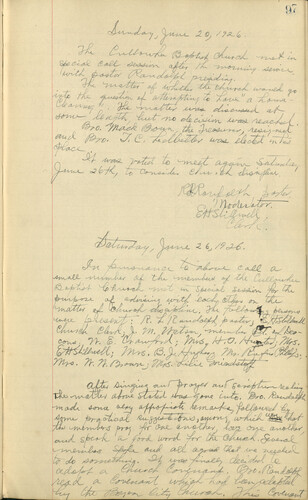 97
Sunday, June 20, 1926.
The Cullowhee Baptist Church met in
special call session after the morning service
with pastor Randolph presiding.
The matter of whether the church would go
into the question of attempting to have a house
cleaning. The matter was discussed at
some length, but no decision was reached.
Bro. Mack Boyer, the Treasurer, resigned
and Bro. T. C. was elected in his
place.
It was voted to meet again Saturday,
June 26th, to consider Church discipline.
R. L. Randolph Pastor
Moderator.
E H Stillwell
Clerk.
Saturday, June 26, 1926.
In pursuance to above call a
small number of the members of the Cullowhee
Baptist Church met in special session for the
purpose of advising with each other on the
matter of Church discipline. The following persons
were present: R. L. Randolph, pastor, E. H. Stillwell
Church Clerk, J. M. Watson, member of Dea-
cons, W. E. Crawford; Mrs. H. O. Mrs.
E H Stillwell; Mrs. B. J. Hughes; Mr.
Mrs. W. N. Brown; Mrs. Lillie
After singing and prayer and scripture reading
the matter above stated was gone into. Bro. Randolph
made some very appropriate remarks, followed by
some practical suggestions, which were that
the members pray for one another, love one another
and speak a good word for the Church. Several
members spoke and all agreed that we needed
to do something. It was finally decided to
adopt a Church Covenant. Bro. Randolph
read a Covenant which had been adopted
by the Bryson City Church. This Cove-